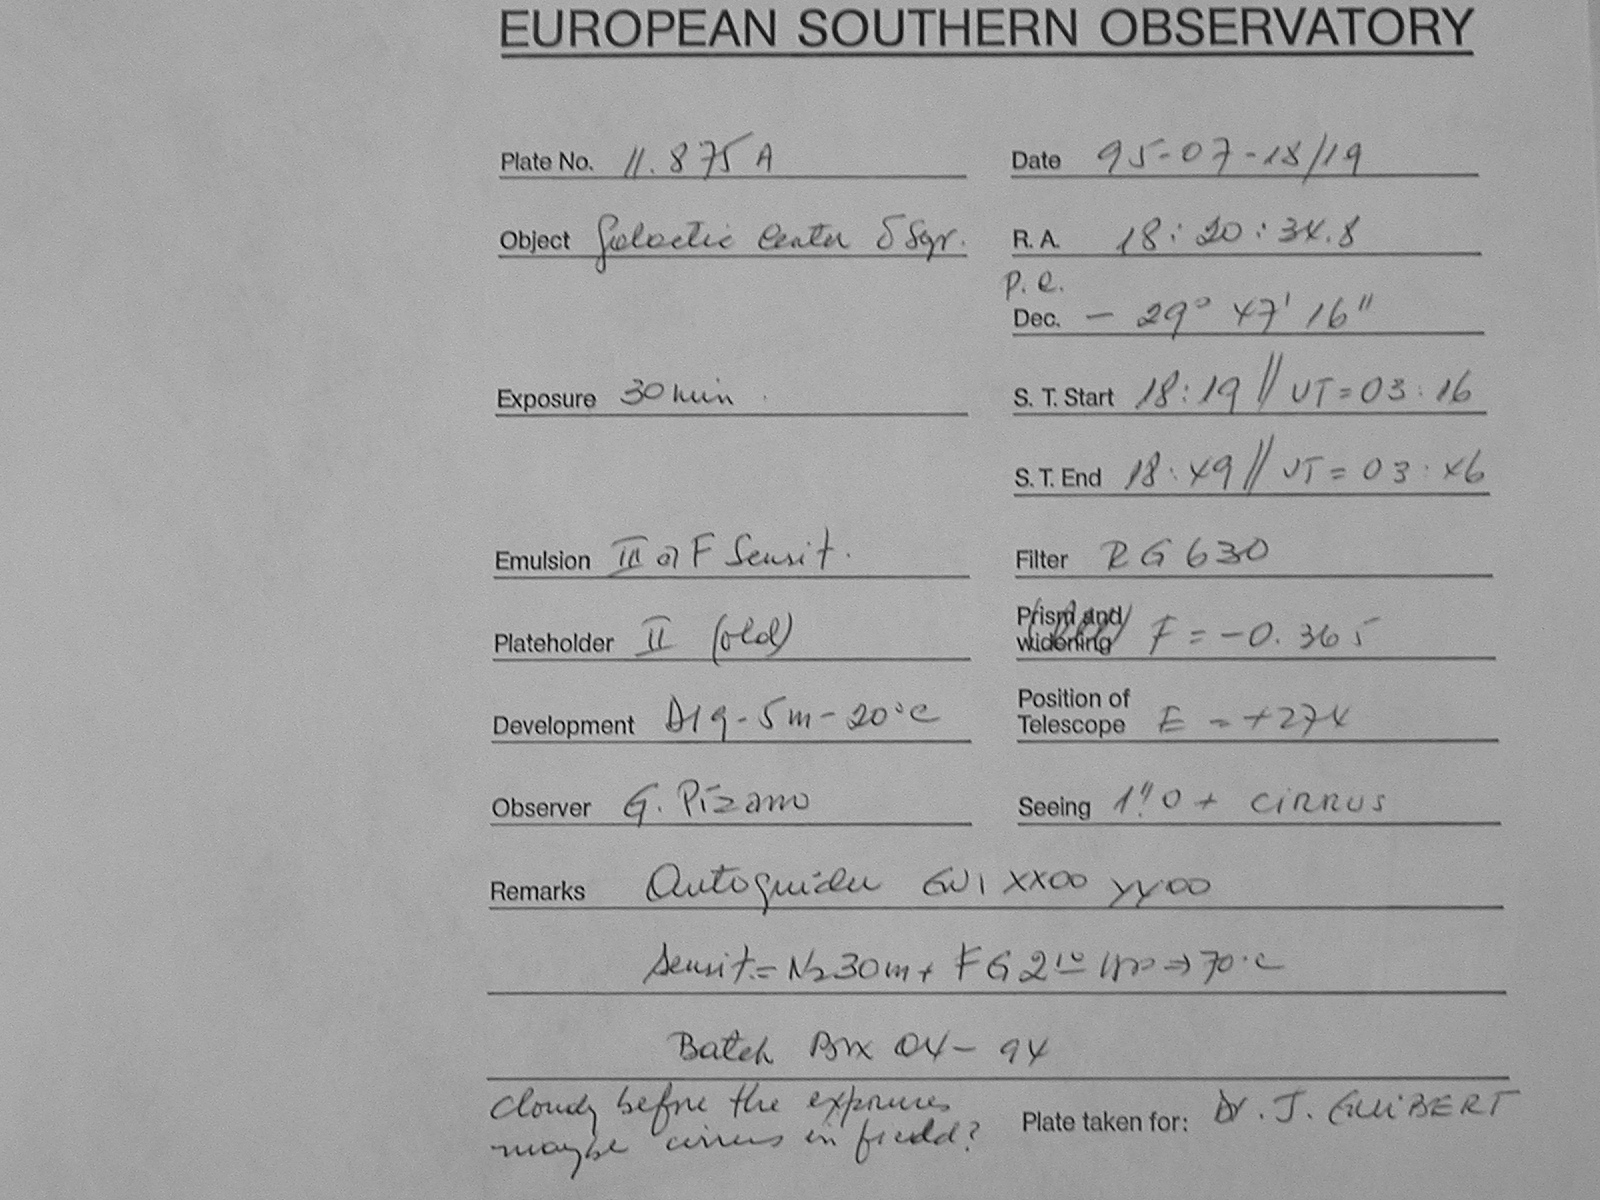 EUROPEAN SOUTHERN OBSERVATORY
Plate No. 11.875 A
Date 95-07-18/19
Object Galactic Center δ Sgr.
R. A. 18:20:34.8
P. e.
Dec. - 29° 47' 16"
Exposure 30 min.
S. T. Start 18:19 // UT=03:16
S. T. End 18:49 // UT=03:46
Emulsion III a F Sensit.
Filter RG 630
Plateholder II (old)
Prism and
widening F = -0.365
Development D19-5m-20°C
Position of
Telescope E = +274
Observer G. Pizarro
Seeing 1".0 + cirrus
Remarks Autoguider GW1 XX00 YY00
Sensit.= N2 30m + FG 2 => 70°C
Batch Box 04-94
cloudy before the exposures
maybe cirrus in field?
Plate taken for: Dr. J. GUIBERT